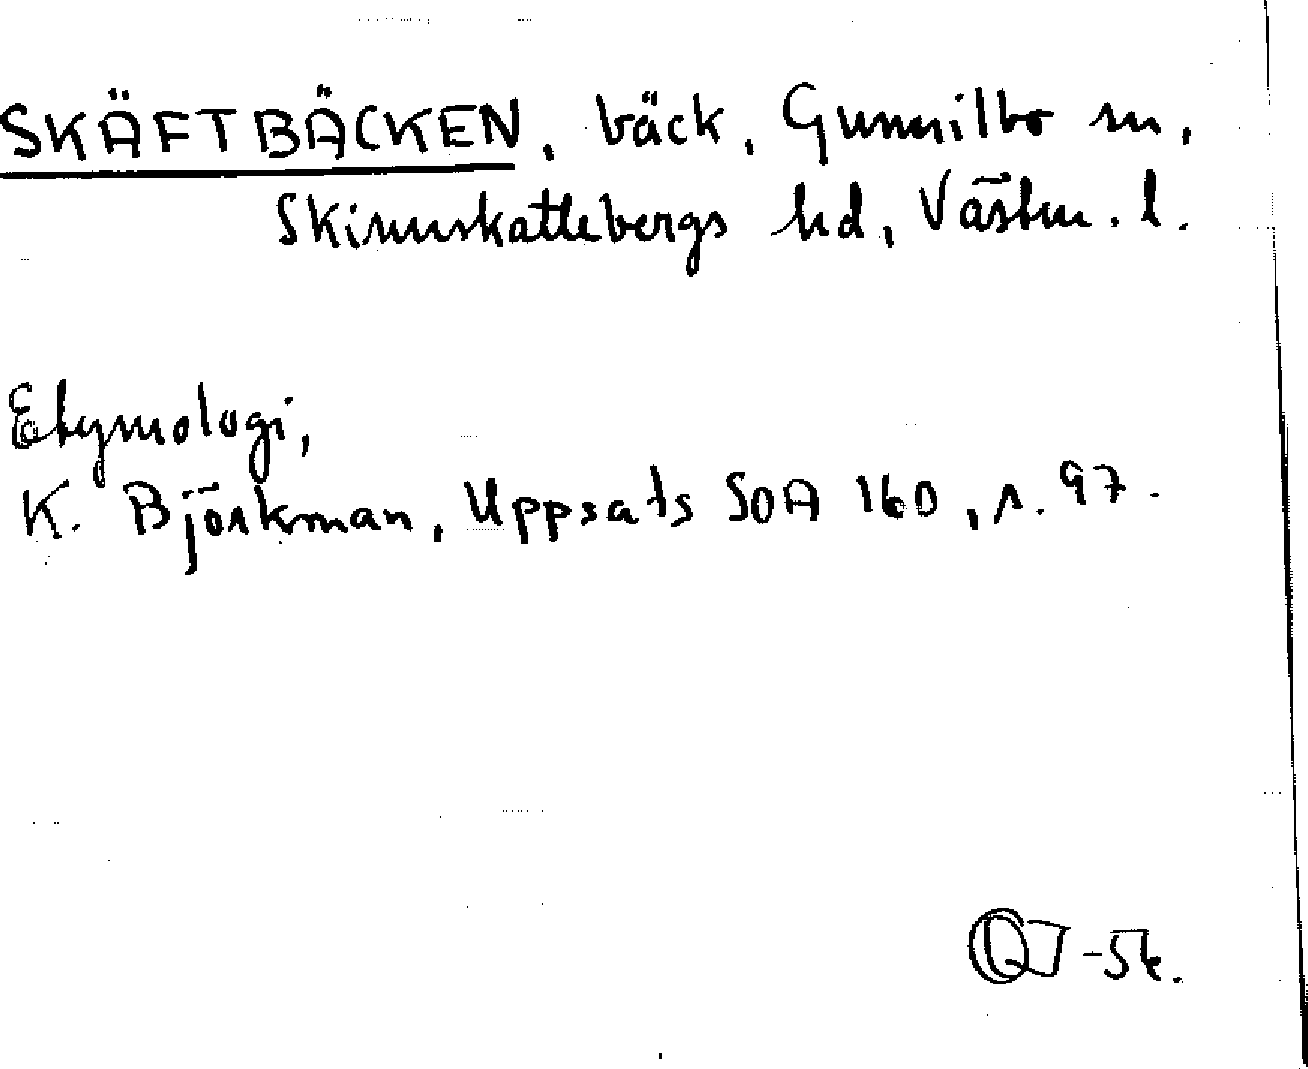 SKÄFTBÄCKEN, bäck, Gunnilbo sn,
Skinnskattebergs hd, Västm. l.
Etymologi,
K. Björkman, Uppsats SOA 160, s. 97.